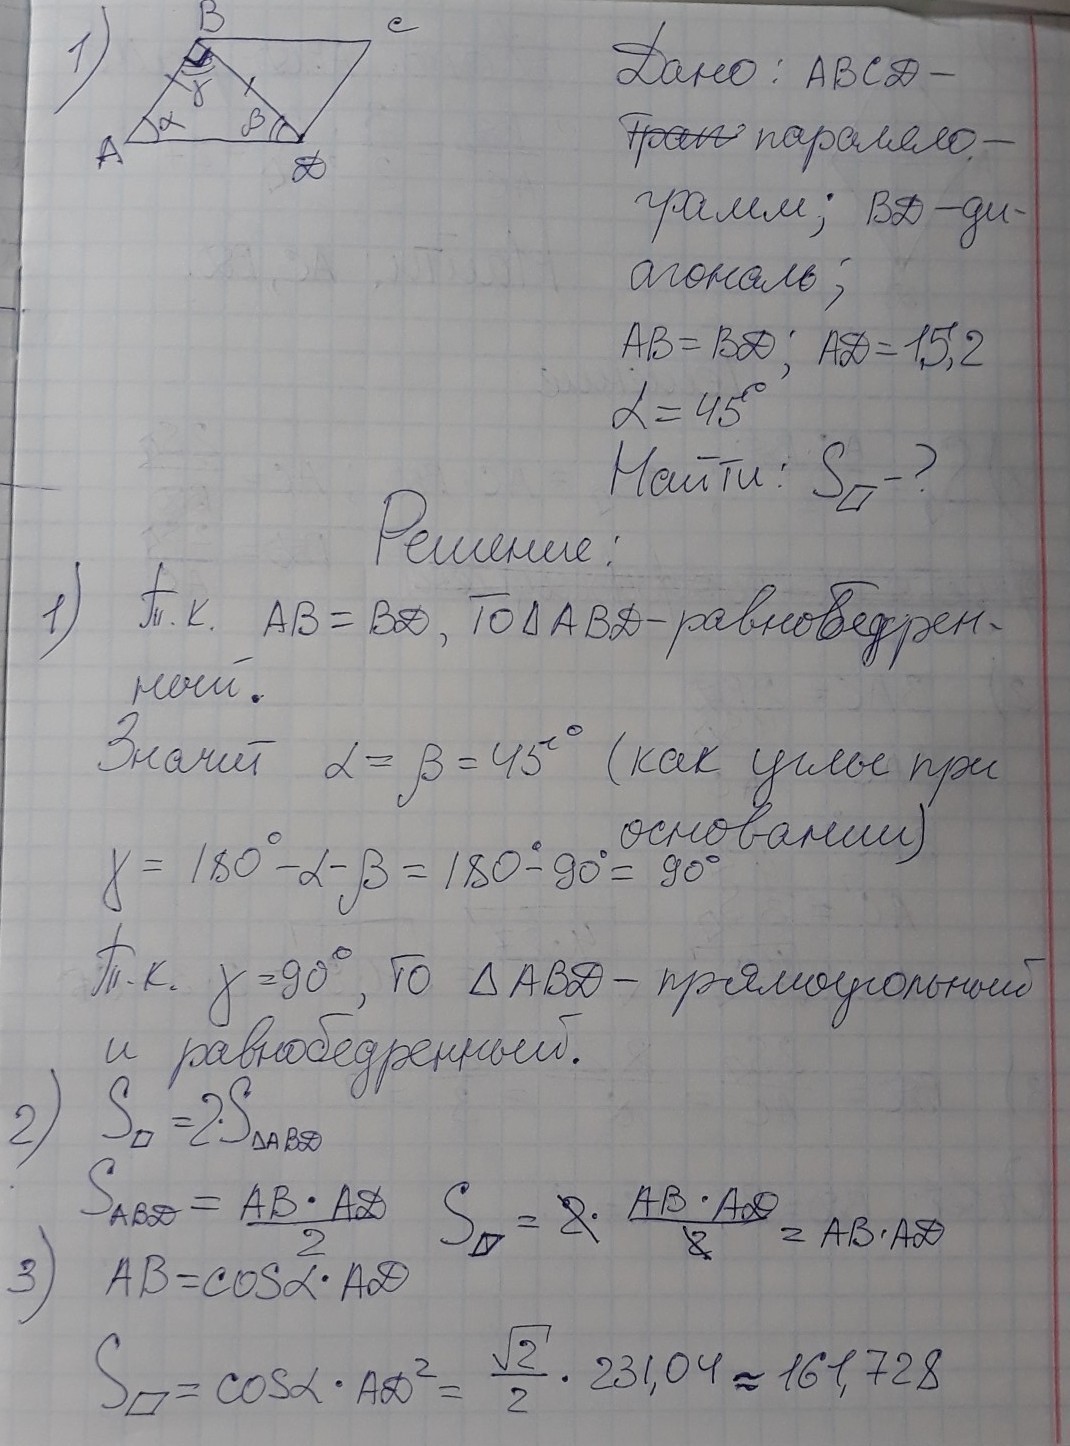 1)
B
C
γ
α
β
A
D
Дано: ABCD –
Трап параллело-
грамм; BD – ди-
агональ;
AB = BD; AD = 15,2
α = 45°
Найти: S▱ - ?
Решение:
1) Т.к. AB = BD, то Δ ABD – равнобедрен-
ный.
Значит α = β = 45° (как углы при
основании)
γ = 180° - α - β = 180° - 90° = 90°
Т.к. γ = 90°, то Δ ABD – прямоугольный
и равнобедренный.
2) S▱ = 2·SΔABD
S ABD = AB · AD / 2 S▱ = 2 · AB · AD / 2 = AB · AD
3) AB = cosα · AD
S▱ = cosα · AD² = √2 / 2 · 231,04 ≈ 161,728